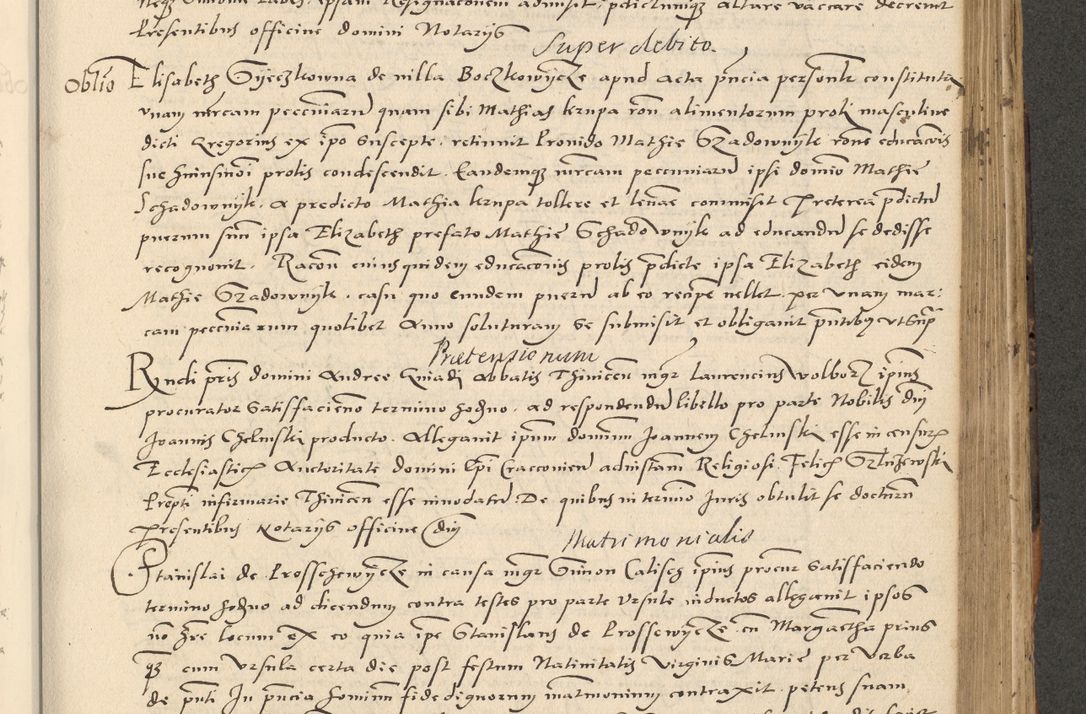 presentibus officine domini Notarijs
Super debito.
Oblio Elisabeth Gyeczkowna de villa Boczkowycze apud acta pñcia personlr constituta
vnam mrcam pecuniarũ quam sibi Mathias krupa roñ alimentorum prolis masculine
dicti Gregorius ex ipo suscepte, retinuit Provido Mathie Szadownyk roñe educacõis
sue hmõi prolis condescendit. Eandemq; mrcam pecuniarũ ipsi domio Mathie
Schadownyk, a predicto Mathia krupa tollere et levare commisit Preterea pdictũ
puerum suũ ipsa Elizabeth prefato Mathie Schadownyk ad educandũ se dedisse
recognovit. Racoñ cuiusquidem educacõnis prolis pdicte ipsa Elizabeth eidem
Mathie Szadownyk, casu quo eundem puerũ ab eo recipe vellet, per vnam mar:
cam pecuniarum quolibet Anno soluturam se submisit et obligavit pñtibus vt supra
Pretensionum
Rndi pris domini Andree Gniadi Abbatis Thinicen mgr Laurencius Wolborz ipius
procurator satisfacieno termino hodno, ad respondendũ libello pro parte Nobilis dni
Joannis Chelmski producto. Allegavit ipum dominum Joannem Chelmski esse in censuris
Ecclesiasticis Auctoritate domini Epi Cracovien ad instam Religiosi Felicis Szluzewski
Prepti infirmarie Thinicen esse innodatũ De quibus in termio Juris obtulit se docturũ
presentibus Notarijs officine dni
Matrimonialis
Stanislai de Prosschewycze in causa mgr Simon Calisch ipius procur satisfaciendo
termino hodno ad dicendum contra testes pro parte Vrsule inductos allegavit ipsos
nõ hre locum ex eo quia ipe Stanislaus de Prossewycze cũ Margaretha prius
q; cum Vrsula certa die post festum Nativitatis virginis Marie per verba
de pñti In pñcia hominum fidedignorum matrimonium contraxit. petens suam